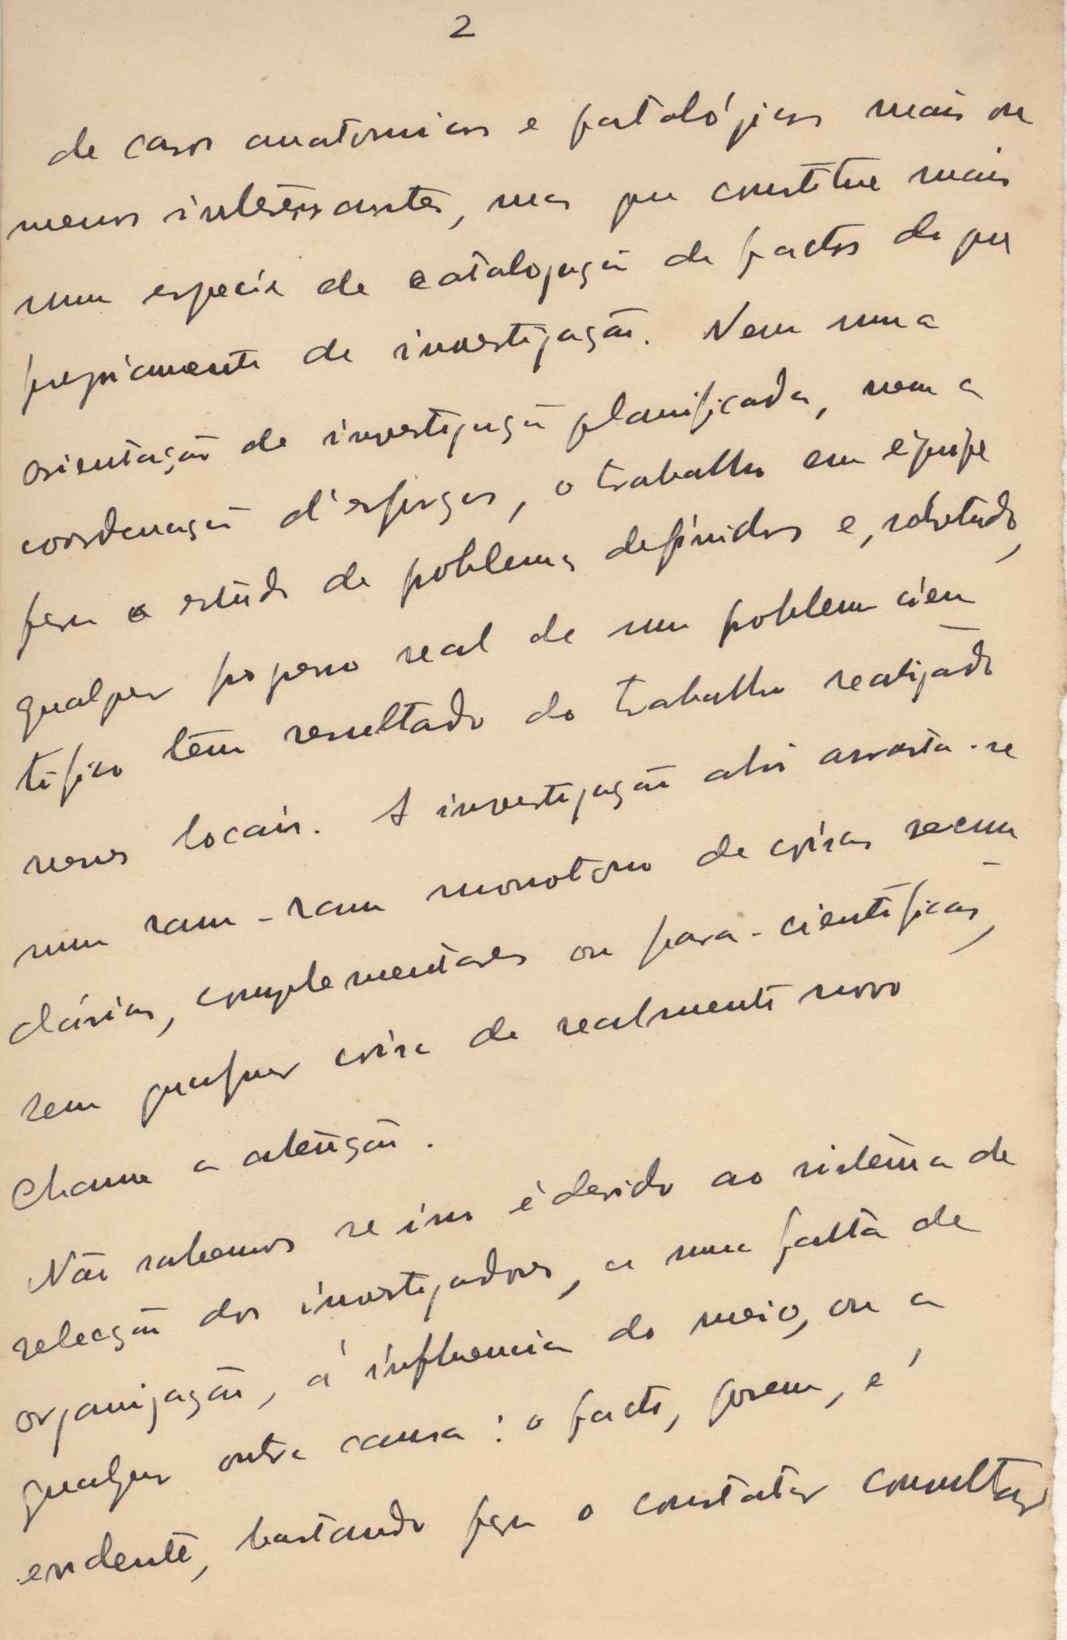 2
de casos anatomicos e patológicos mais ou
menos interessantes, mas que constitue mais
uma especie de catalogação de factos do que
propriamente de investigação. Nem uma
orientação de investigação planificada, nem a
coordenação d'esforços, o trabalho em équipe
para o estudo de problemas definidos e, sobretudo,
qualquer progresso real de um problema cien
tifico têm resultado do trabalho realizado
nesses locais. A investigação ahi arrasta-se
num ram-ram monotono de coisas secun
dárias, complementares ou para-cientificas,
sem qualquer coisa de realmente novo
chame a atenção.
Não sabemos se isso é devido ao sistêma de
selecção dos investigadores, a uma falta de
organização, á influencia do meio, ou a
qualquer outra causa: o facto, porem, é
evidente, bastando para o constatar consultar